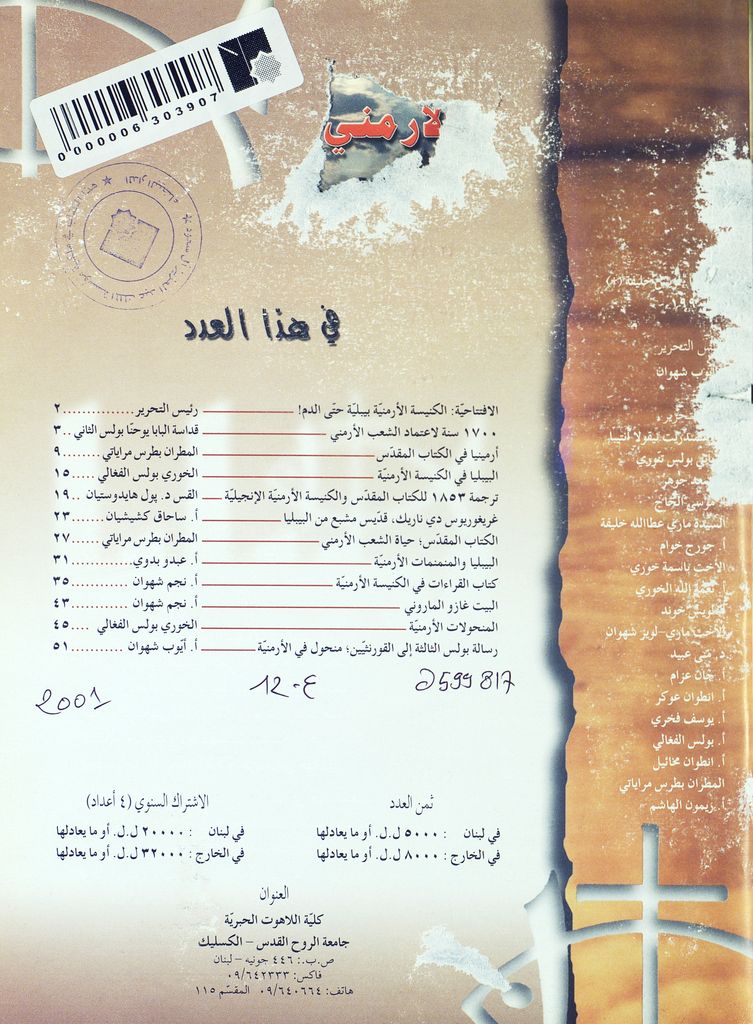 0 000006 303907
لارمني
في هذا العدد
الافتتاحيّة: الكنيسة الأرمنيّة بيبليّة حتّى الدم! رئيس التحرير .............. ٢
١٧٠٠ سنة لاعتماد الشعب الأرمني قداسة البابا يوحنّا بولس الثاني .. ٣
أرمينيا في الكتاب المقدّس المطران بطرس مراياتي ....... ٩
البيبليا في الكنيسة الأرمنيّة الخوري بولس الفغالي ....... ١٥
ترجمة ١٨٥٣ للكتاب المقدّس والكنيسة الأرمنيّة الإنجيليّة القس د. پول هايدوستيان .. ١٩
غريغوريوس دي ناريك، قدّيس مشبع من البيبليا أ. ساحاق كشيشيان ....... ٢٣
الكتاب المقدّس؛ حياة الشعب الأرمني المطران بطرس مراياتي ....... ٢٧
البيبليا والمنمنمات الأرمنيّة أ. عبدو بدوي ............ ٣١
كتاب القراءات في الكنيسة الأرمنيّة أ. نجم شهوان ............ ٣٥
البيت غازو الماروني أ. نجم شهوان ............ ٤٣
المنحولات الأرمنيّة الخوري بولس الفغالي .... ٤٥
رسالة بولس الثالثة إلى القورنثيّين؛ منحول في الأرمنيّة أ. أيّوب شهوان ........... ٥١
599817
12-٤
2001
ثمن العدد
في لبنان : ٥٠٠٠ ل.ل. أو ما يعادلها
في الخارج : ٨٠٠٠ ل.ل. أو ما يعادلها
الاشتراك السنوي (٤ أعداد)
في لبنان : ٢٠٠٠٠ ل.ل. أو ما يعادلها
في الخارج : ٣٢٠٠٠ ل.ل. أو ما يعادلها
العنوان
كليّة اللاهوت الحبريّة
جامعة الروح القدس – الكسليك
ص.ب.: ٤٤٦ جونيه – لبنان
فاكس: ٠٩/٦٤٢٣٣٣
هاتف: ٠٩/٦٤٠٦٦٤ المقسّم ١١٥
التحرير
شهوان
بولس
جوهر
الحاج
السيدة ماري عطاالله خليفة
أ. جورج خوام
الأخت باسمة خوري
الله الخوري
خوند
ماري-لويز شهوان
عبيد
أ. جان عزام
أ. انطوان عوكر
أ. يوسف فخري
أ. بولس الفغالي
أ. انطوان مخائيل
المطران بطرس مراياتي
أ. ريمون الهاشم